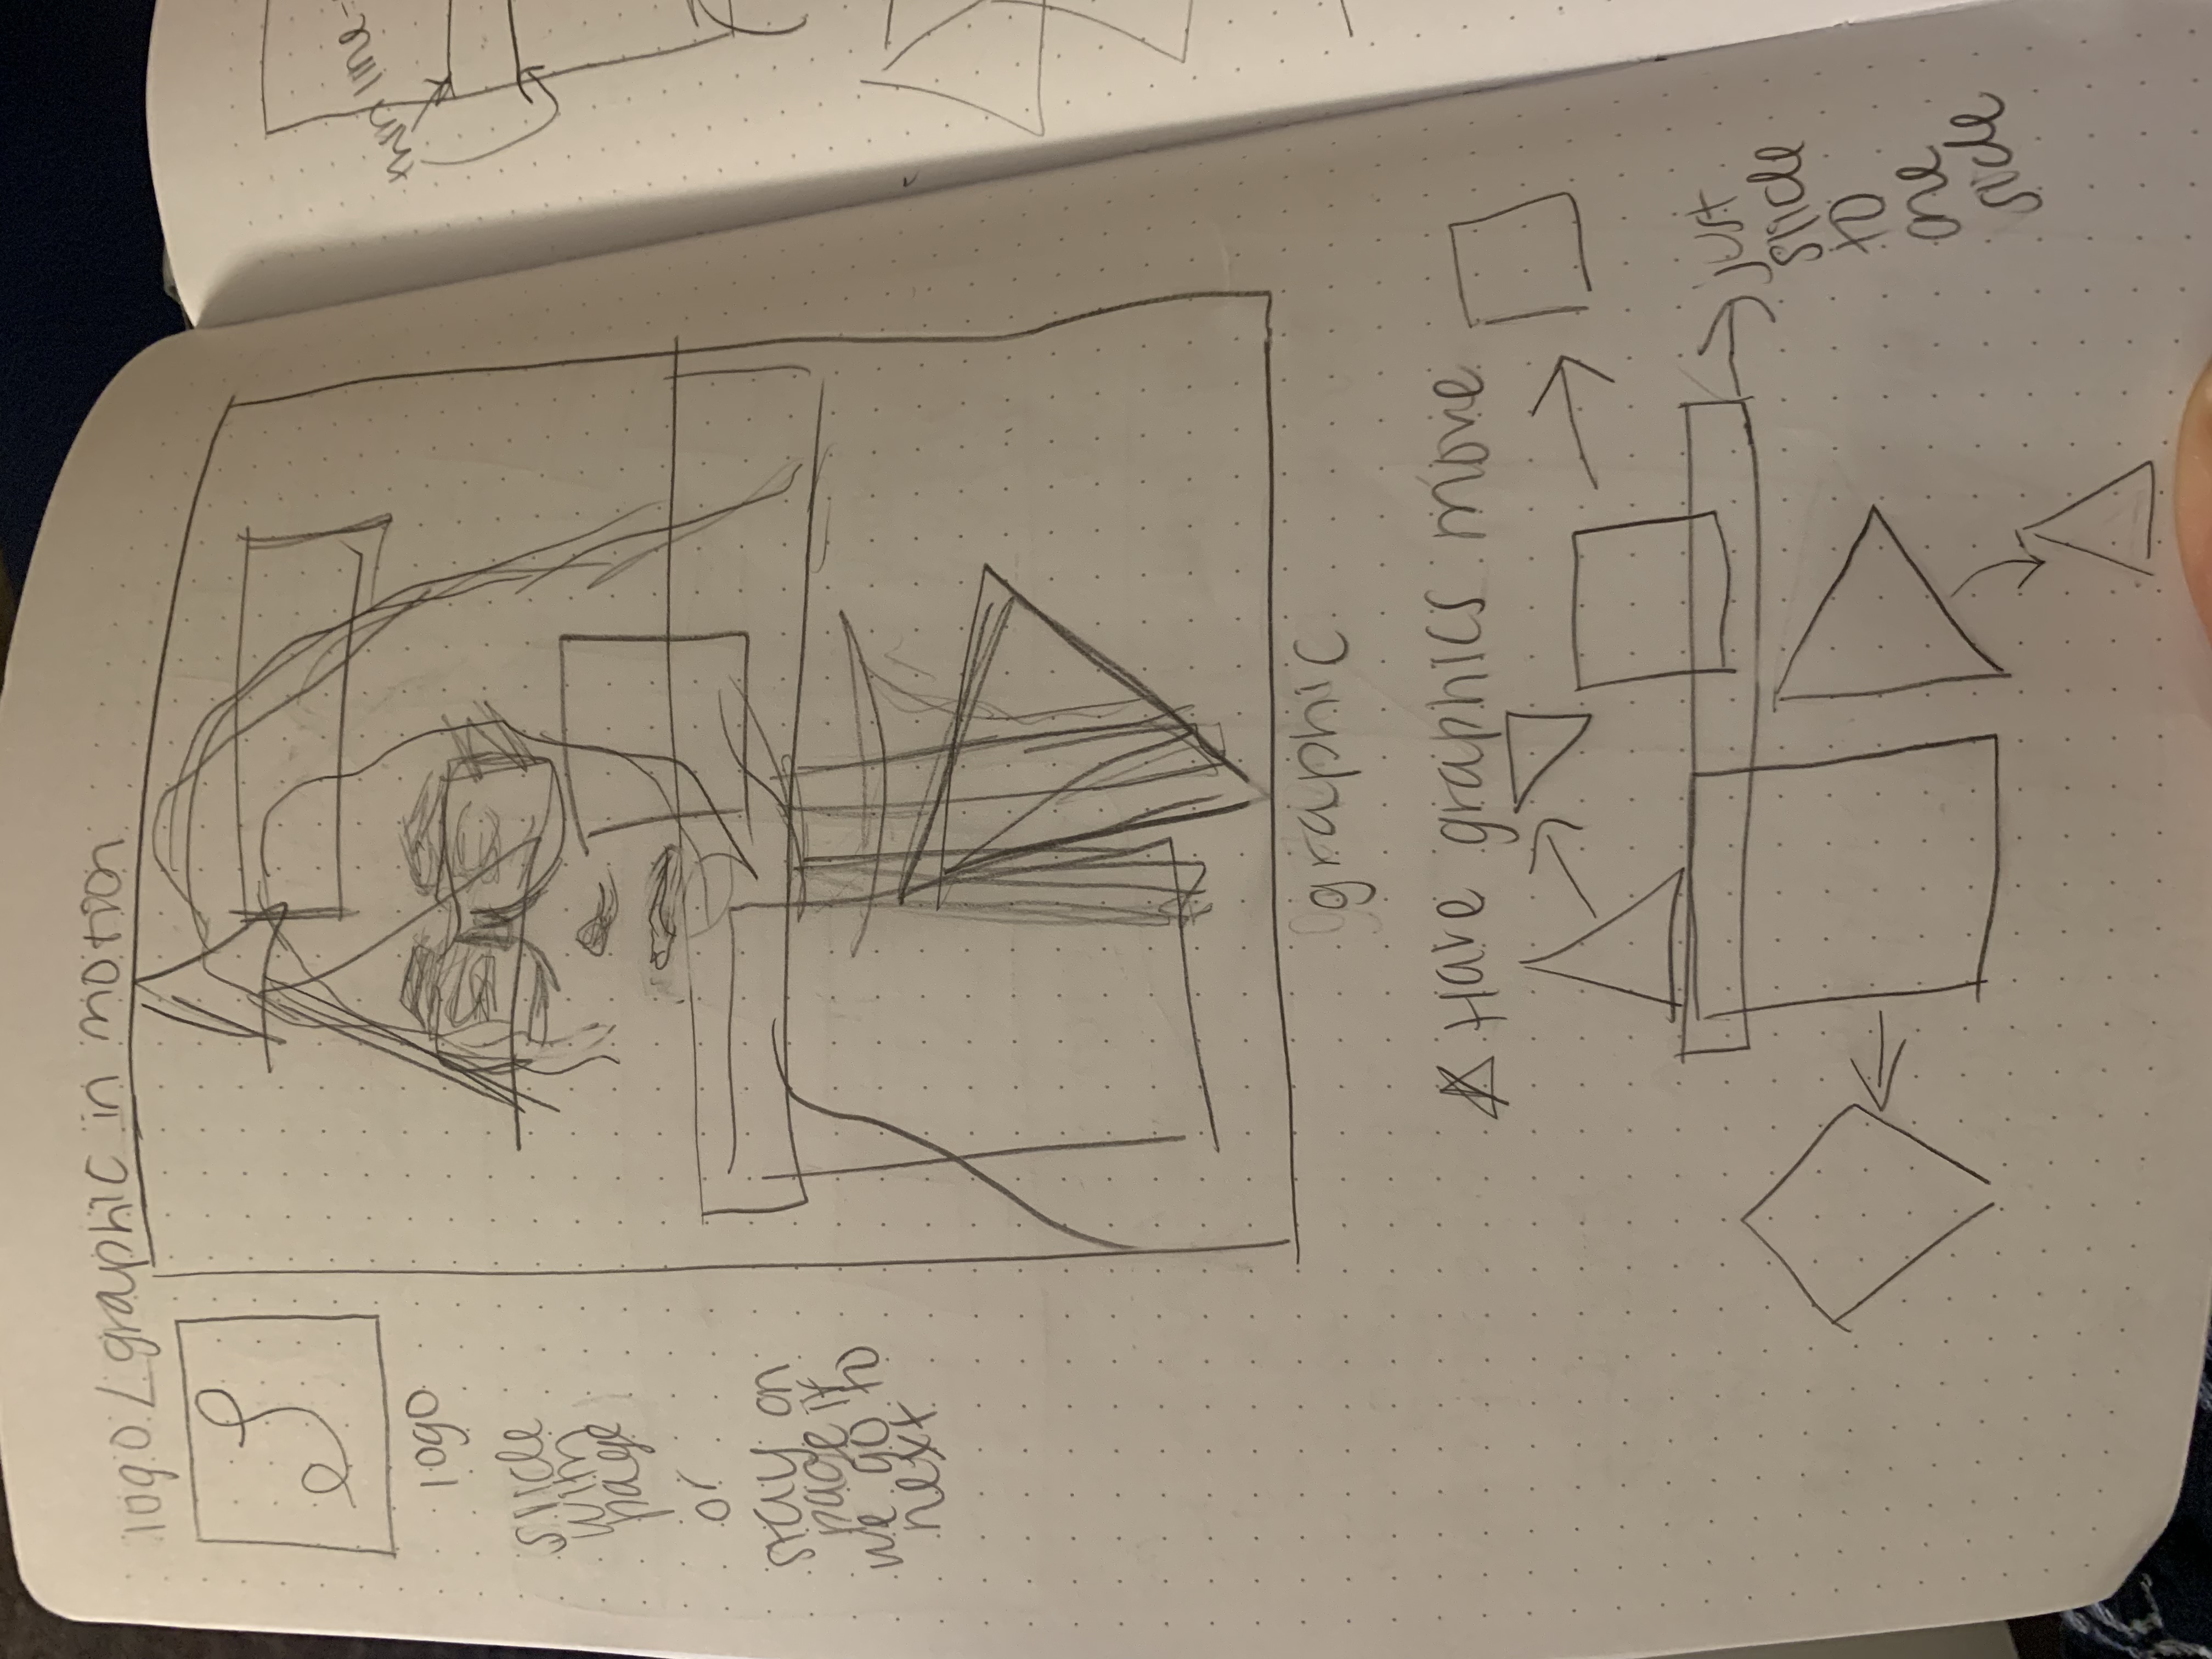 logo / graphic in motion
S
logo
slide
with
page
or
stay on
page if
we go to
next
graphic
Have graphics move
just
slide
to
one
side
thin line